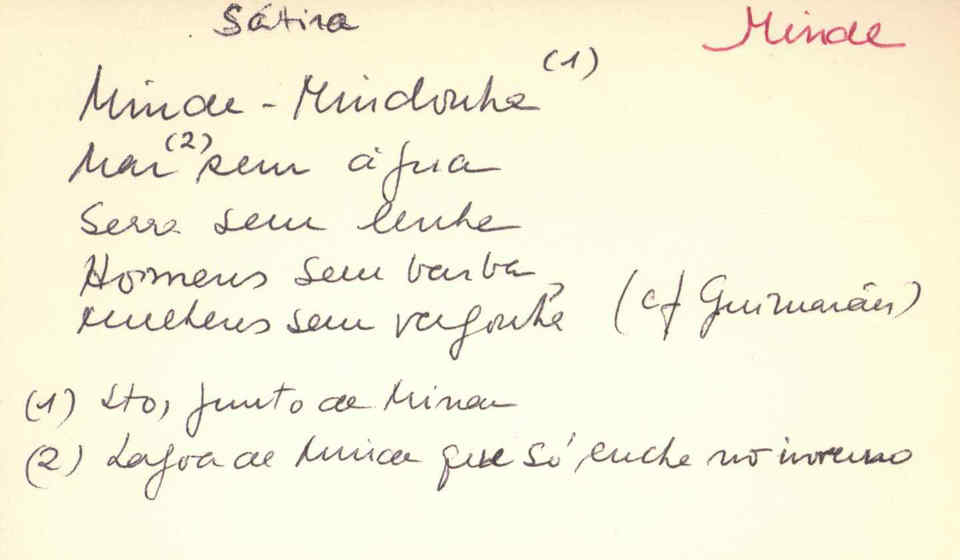 Sátira
Minde
Minde - Mindonha (1)
Mar (2) sem água
Serra sem lenha
Homens sem barba,
Mulheres sem vergonha (cf Guimarães)
(1) Sto, junto de Minde
(2) Lagoa de Minde que só enche no inverno